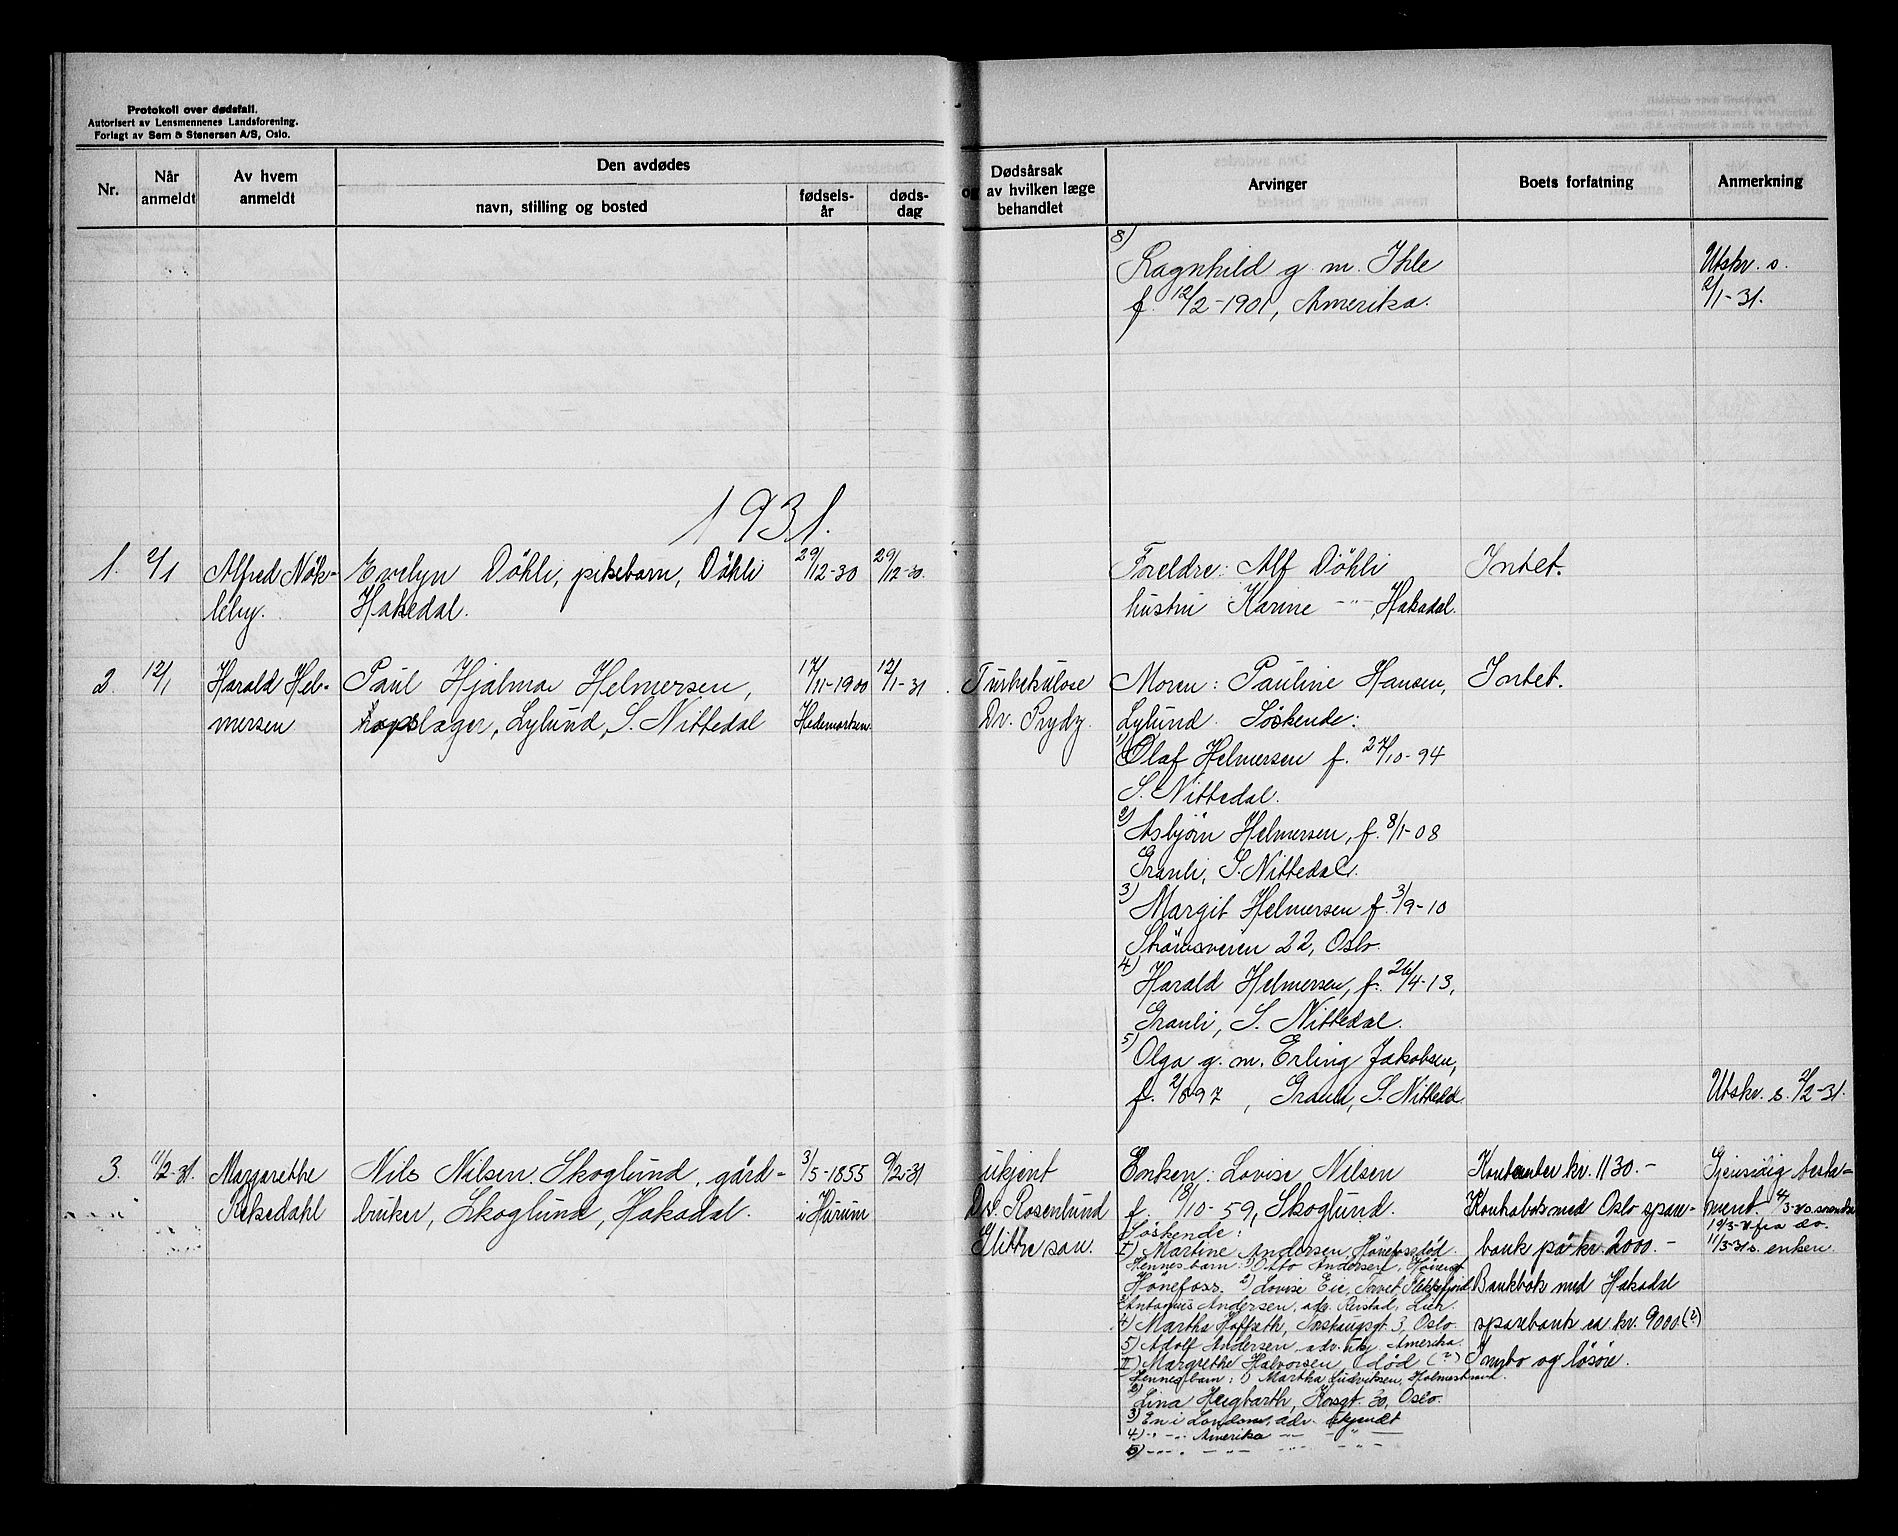 Protokoll over dødsfall.
Autorisert av Lensmennenes Landsforening.
Forlagt av Sem & Stenersen A/S, Oslo.
Nr.
Når anmeldt
Av hvem anmeldt
Den avdødes
navn, stilling og bosted
fødsels-år
døds-dag
Dødsårsak
og av hvilken læge
behandlet
Arvinger
Boets forfatning
Anmerkning
8)
Ragnhild g. m. Ihle
f. 12/2-1901, Amerika.
Utskr. s.
2/1-31.
1931.
1. 2/1 Alfred Nök- Evelyn Döhli, pikebarn, Döhli 29/12-30 29/12-30. Foreldre: Alf Döhli Intet.
leby. Hakedal. hustru Karine -"- Hakadal.
2. 12/1 Harald Hel- Paul Hjalmar Helmersen, 17/11-1900 12/1-31. Turbekulose Moren: Pauline Hansen, Intet.
mersen lager, Lylund, S. Nittedal Hedemarken Dr. Prydz. Lylund. Söskende:
1) Olaf Helmersen f. 27/10-94
S. Nittedal.
2) Asbjörn Helmersen, f. 8/1-08
Granli, S. Nittedal.
3) Margit Helmersen f. 3/9-10
Strömsveien 22, Oslo.
4)
Harald Helmersen, f. 26/4-13,
Granli, S. Nittedal.
5)
Olga g. m. Erling Jakobsen,
f. 97, Granli, S. Nittedal. Utskr. s. 2/2-31.
3. 11/2-31. Margarethe Nils Nilsen Skoglund, gård- 3/5-1855 9/2-31 ukjent Enken: Lovise Nilsen Kontanter kr. 1130.- Gjensidig testa-
bruker, Skoglund, Hakadal. i Hurum Dr. Rosenlund f. 18/10-59, Skoglund. Kontrabok med Oslo spare- ment.
Glittre san. Söskende:
I) Martine Andersen, Hönefoss död. bank på kr. 2000.- 11/3-31 s. enken.
Hennes barn: 1) Otto Andersen,
Hönefoss. 2) Lovise Eie, Torvet, Flekkefjord Bankbok med Hakadal
3) Antonius Andersen, adr. Lier.
4) Martha Oslo sparebank ca kr. 9000 (?)
5) Adolf Andersen adr. Amerika.
II) Margrethe Halvorsen död (?) Innbo og lösöre.
Hennes barn: 1) Martha Ludviksen, Holmestrand.
2)
Lina Heigbarth, Korsgt. 30, Oslo.
3) En i London, adr. ukjendt
4) -"- -"- Amerika -"- -"-
5) -"- -"- -"- -"- -"-